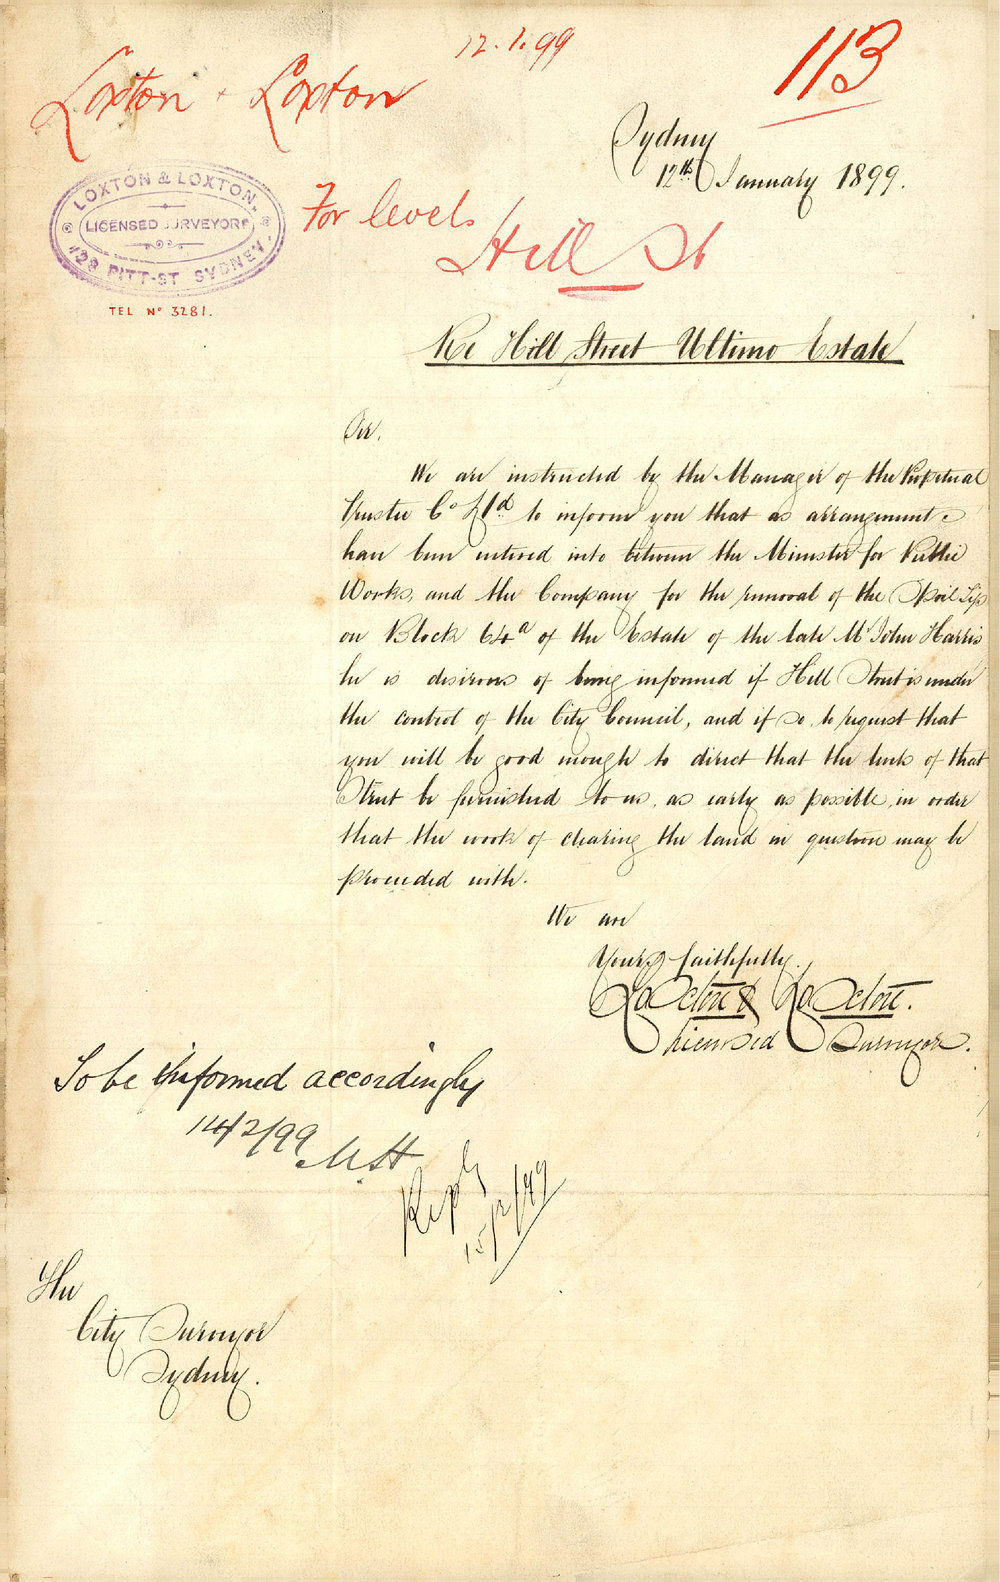 12.1.99
113
Loxton & Loxton
Sydney
12th January 1899.
LOXTON & LOXTON.
LICENSED SURVEYORS
PITT-ST SYDNEY.
TEL No 3281.
For levels
Hill St
Re Hill Street Ultimo Estate
Sir,
We are instructed by the Manager of the Perpetual
Trustee Co Ltd to inform you that as arrangements
have been entered into between the Minister for Public
Works, and the Company for the removal of the Spoil Tip
on Block 64a of the Estate of the late Mr John Harris
he is desirous of being informed if Hill Street is under
the control of the City Council, and if so, to request that
you will be good enough to direct that the levels of that
Street be furnished to us, as early as possible, in order
that the work of clearing the land in question may be
proceeded with.
We are
Yours faithfully.
Loxton & Loxton.
Licensed Surveyors.
To be informed accordingly
14/2/99
Reply
15/2/99
The
City Surveyor
Sydney.